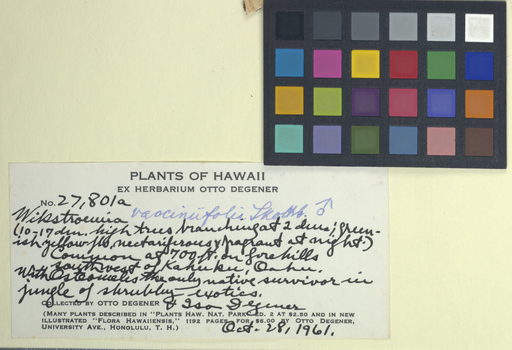 PLANTS OF HAWAII
EX HERBARIUM OTTO DEGENER
No. 27,801a
Wikstroemia vacciniifolia Skottsb. ♂
(10-17 dm. high trees branching at 2 dm.; green-
ish yellow fls. nectariferous & fragrant at night.)
Common at 700 ft. on forehills
southwest of Kahuku, Oahu.
With Osteomeles the only native survivor in
jungle of shrubby exotics.
COLLECTED BY OTTO DEGENER & Isa Degener
(MANY PLANTS DESCRIBED IN "PLANTS HAW. NAT. PARK" ED. 2 AT $2.50 AND IN NEW
ILLUSTRATED "FLORA HAWAIIENSIS," 1192 PAGES FOR $6.00 BY OTTO DEGENER,
UNIVERSITY AVE., HONOLULU, T. H.) Oct. 28, 1961.